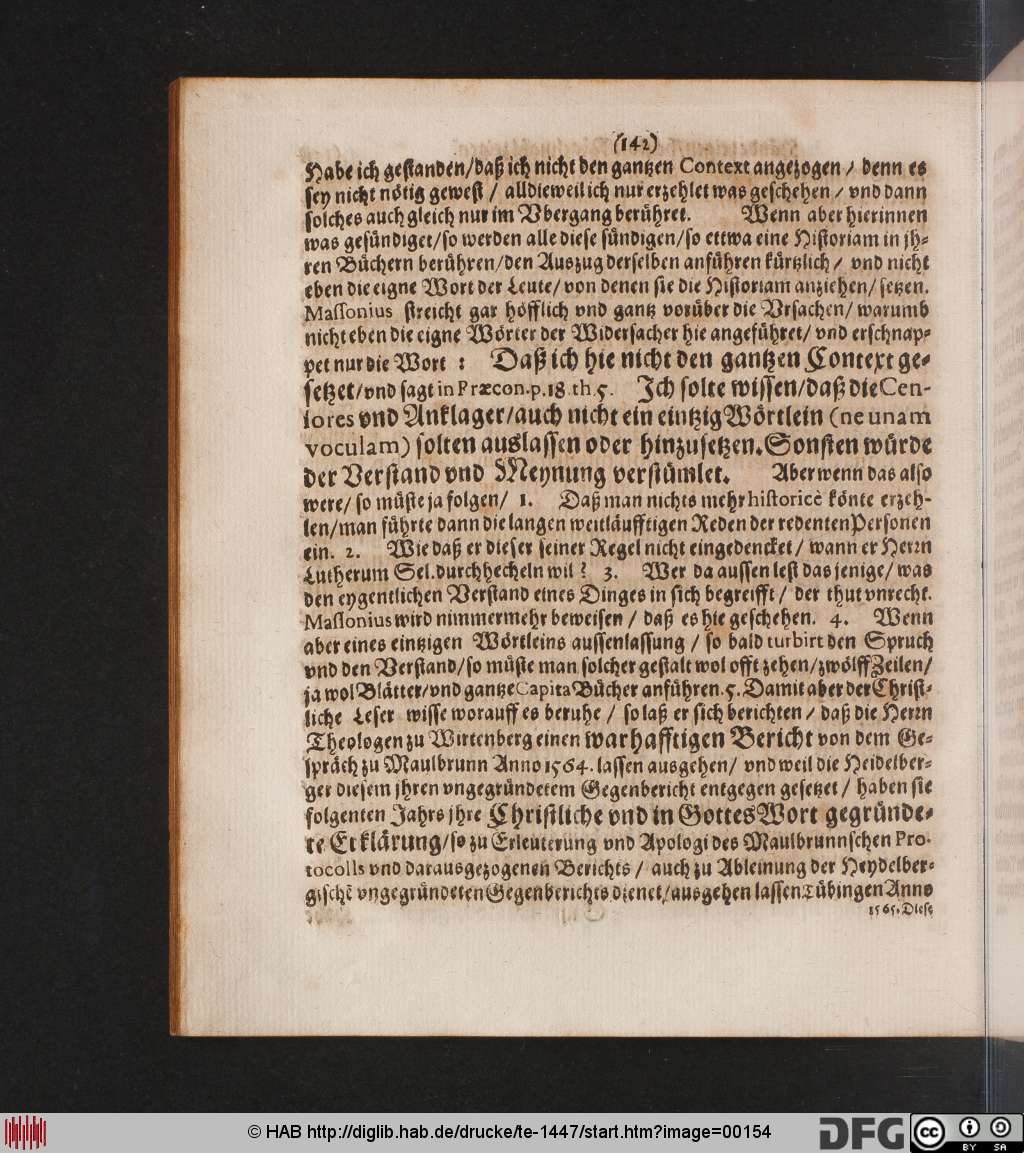 (142)
Habe ich gestanden/daß ich nicht den gantzen Context angezogen / denn es
sey nicht nötig gewest / alldieweil ich nur erzehlet was geschehen / vnd dann
solches auch gleich nur im Vbergang berühret. Wenn aber hierinnen
was gesündiget/so werden alle diese sündigen/so ettwa eine Historiam in jh-
ren Büchern berühren/den Auszug derselben anführen kürtzlich / vnd nicht
eben die eigne Wort der Leute/ von denen sie die Historiam anziehen/ setzen.
Massonius streicht gar höfflich vnd gantz vorüber die Vrsachen/ warumb
nicht eben die eigne Wörter der Widersacher hie angeführet/ vnd erschnap-
pet nur die Wort : Daß ich hie nicht den gantzen Context ge-
setzet/vnd sagt in Præcon.p.18.th.5. Ich solte wissen/daß die Cen-
sores vnd Anklager/auch nicht ein eintzig Wörtlein (ne unam
voculam) solten auslassen oder hinzusetzen. Sonsten würde
der Verstand vnd Meynung verstümlet. Aber wenn das also
were/ so müste ja folgen/ 1. Daß man nichts mehr historicè könte erzeh-
len/man führte dann die langen weitläufftigen Reden der redenten Personen
ein. 2. Wie daß er dieser seiner Regel nicht eingedencket / wann er Herrn
Lutherum Sel. durchhecheln wil? 3. Wer da aussen lest das jenige/ was
den eygentlichen Verstand eines Dinges in sich begreifft / der thut vnrecht.
Massonius wird nimmermehr beweisen / daß es hie geschehen. 4. Wenn
aber eines eintzigen Wörtleins aussenlassung / so bald turbirt den Spruch
vnd den Verstand/so müste man solcher gestalt wol offt zehen/zwölff Zeilen/
ja wol Blätter/vnd gantze Capita Bücher anführen. 5. Damit aber der Christ-
liche Leser wisse worauff es beruhe / so laß er sich berichten / daß die Herrn
Theologen zu Wirtenberg einen warhafftigen Bericht von dem Ge-
spräch zu Maulbrunn Anno 1564. lassen ausgehen/ vnd weil die Heidelber-
ger diesem jhren vngegründetem Gegenbericht entgegen gesetzet / haben sie
folgenten Jahrs jhre Christliche vnd in Gottes Wort gegründe-
te Erklärung/so zu Erleuterung vnd Apologi des Maulbrunnschen Pro-
tocolls vnd daraus gezogenen Berichts / auch zu Ableinung der Heydelber-
gischẽ vngegründeten Gegenberichts dienet/ausgehen lassen Tübingen Anno
1565. Diese
© HAB http://diglib.hab.de/drucke/te-1447/start.htm?image=00154
DFG
cc
BY SA